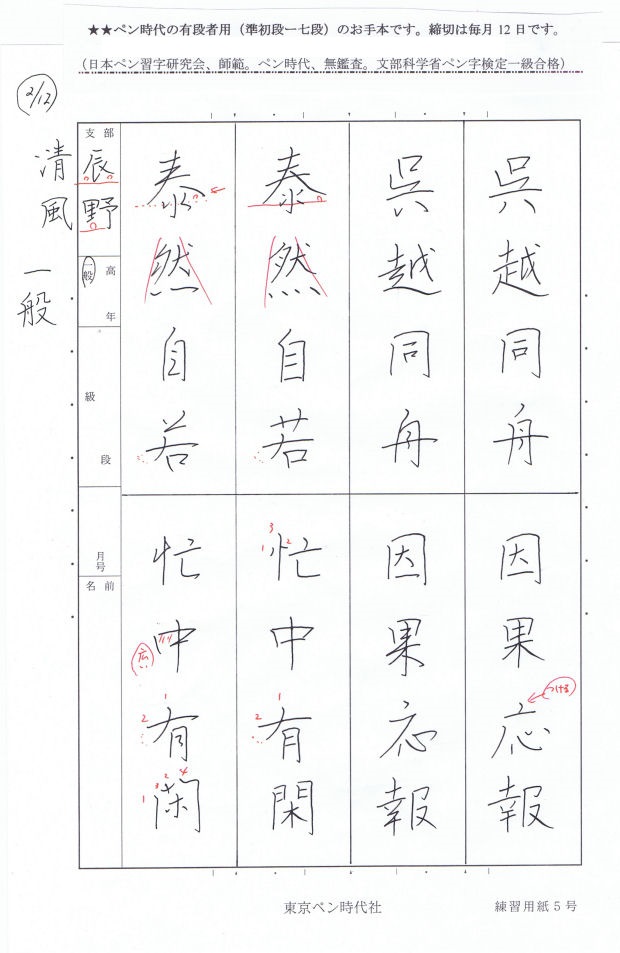 ★★ペン時代の有段者用（準初段ー七段）のお手本です。締切は毎月12日です。
（日本ペン習字研究会、師範。ペン時代、無鑑査。文部科学省ペン字検定一級合格）
呉越同舟
因果応報
つける
呉越同舟
因果応報
泰然自若
忙中有閑
3
1
2
1
2
泰然自若
忙中有閑
広い
1
2
2
3
4
1
支部
辰野
高年
一般
級
段
月号
名前
2/12
清風
一般
東京ペン時代社
練習用紙5号